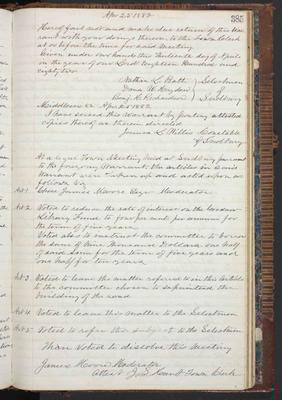 Apr 25 1882
385
Hereof fail not and make due return of this War-
rant with your doings thereon to the Town Clerk
at or before the time for said Meeting
Given under our hands this day of April
in the year of our Lord Eighteen Hundred and
eighty two
Selectmen
of
Sudbury
Middlesex ss Apr 25 1882
I have served this Warrant by posting attested
copies thereof as therein directed
James L. Willis Constable
of Sudbury
At a legal Town Meeting held at Sudbury pursuant
to the foregoing Warrant, the articles in said
Warrant were taken up and acted upon as
follows viz
Art 1 Chose James Moore Esqr Moderator
Art 2 Voted to reduce the rate of interest on the
Library Fund to four per cent per annum for
the term of five years
Voted also to instruct the committee to borrow
the sum of Nine Thousand Dollars, one half
of said sum for the term of five years and
one half for ten years
Art 3 Voted to leave the matter referred to in this Article
to the committee chosen to superintend the
building of the road
Art 4 Voted to leave this matter to the Selectmen
Art 5 Voted to refer this subject to the Selectmen
Then Voted to dissolve this Meeting
James Moore Moderator
Attest Jonas Hunt Town Clerk